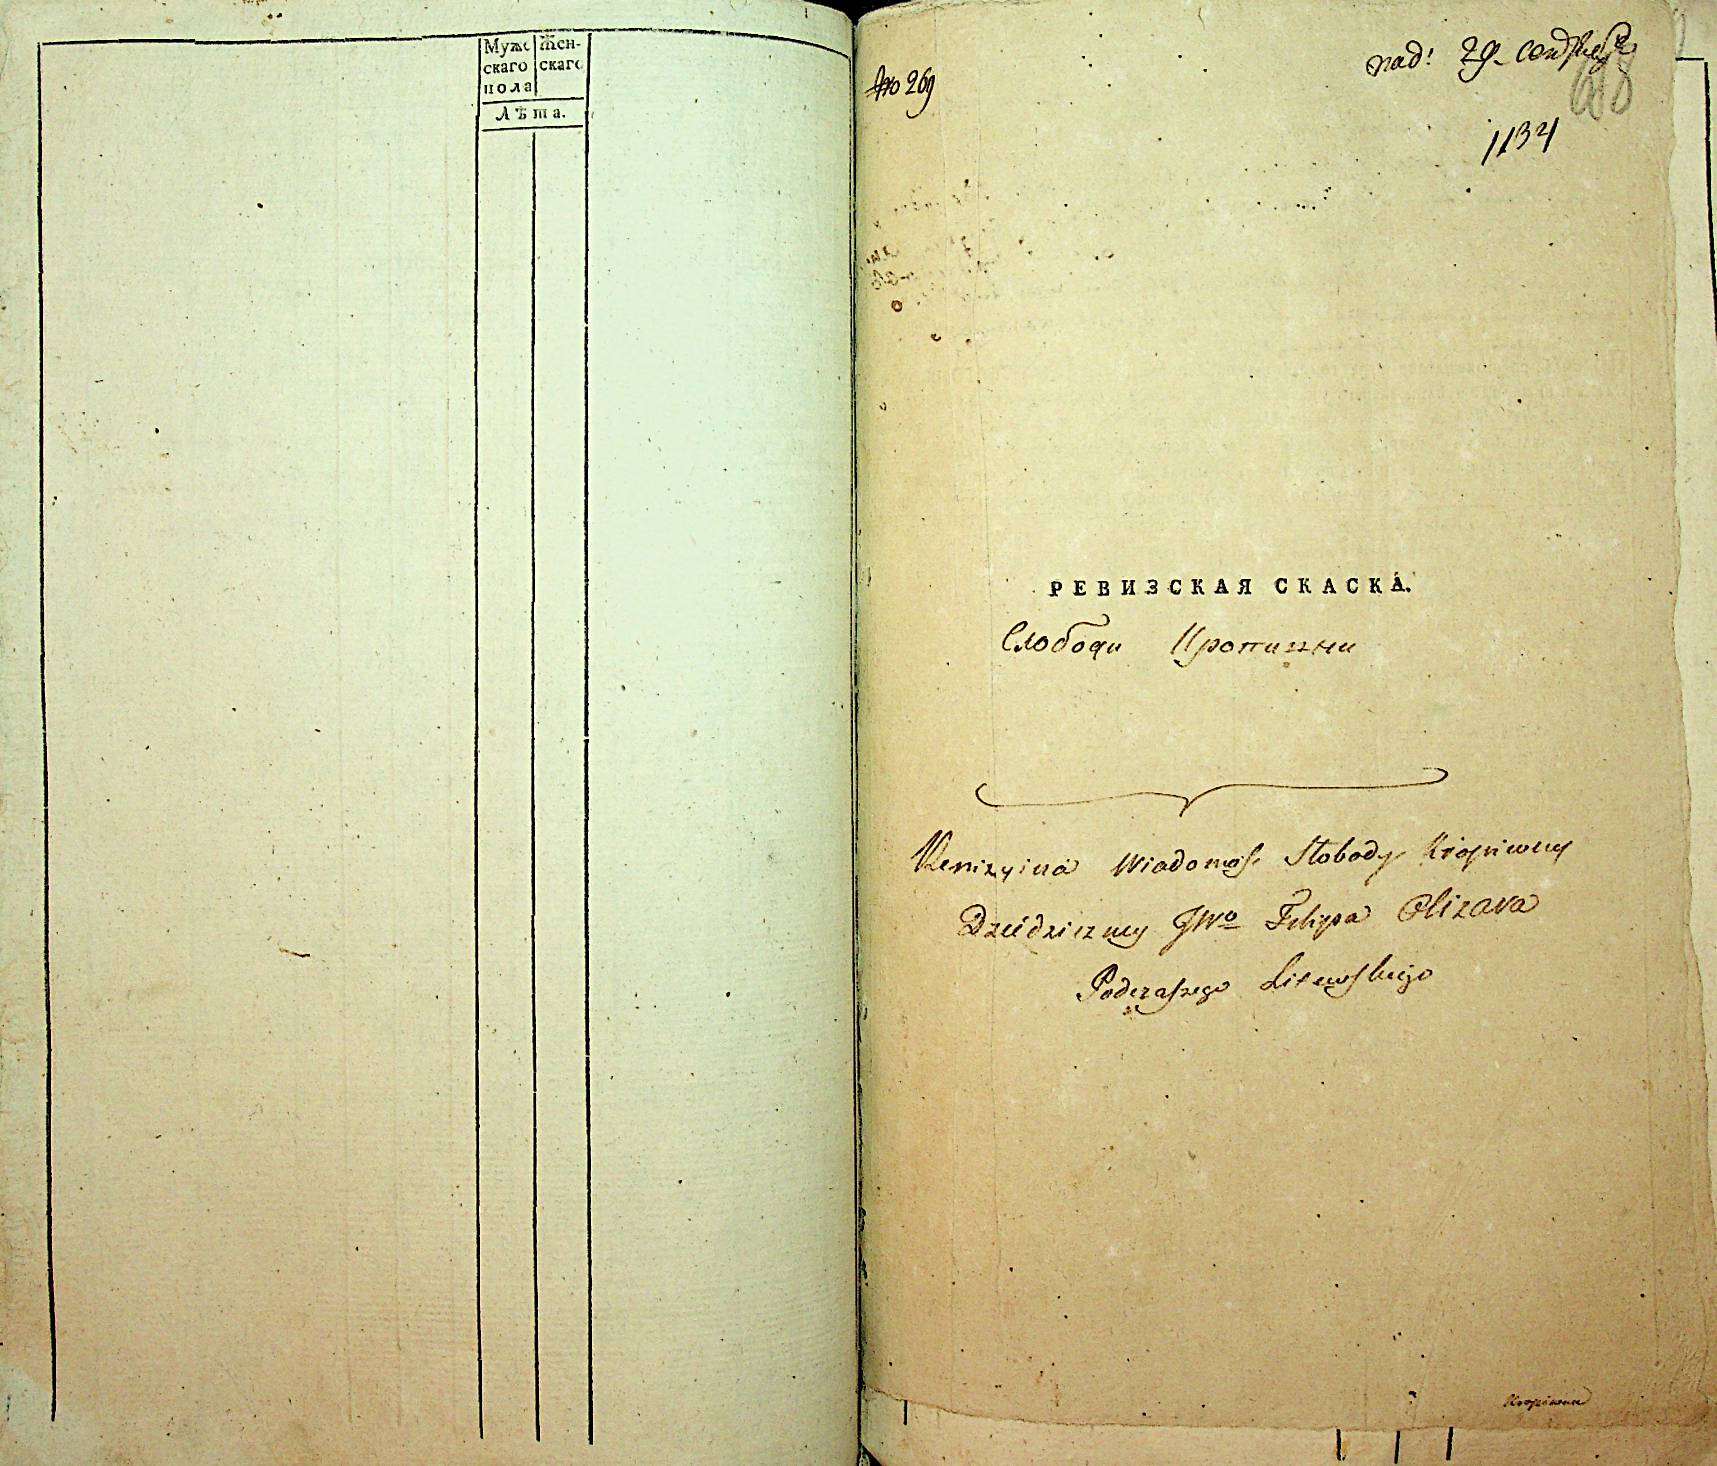 Муже
скаго
пола
Жен-
скаго
Лѣта.
№ 269
pad: 29. сентября
618
1134
РЕВИЗСКАЯ СКАСКА.
Слободи Кропивни
Rewizyina Wiadomość Słobody Kropiwny
Dziedziczney JWo Filipa Olizara
Podczaszego Litewskiego
Kropiwna